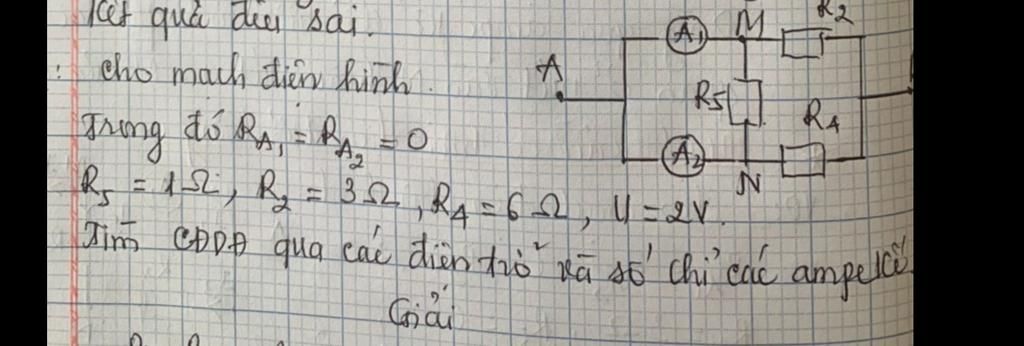 Kết quả đều sai.
: cho mạch điện hình.
Trong đó R_A₁ = R_A₂ = 0
R₅ = 1Ω, R₂ = 3Ω, R₄ = 6Ω, U = 2V.
Tìm CĐDĐ qua các điện trở và số chỉ các ampe kế
Giải
A
A₁
M
R₂
R₅
R₄
A₂
N